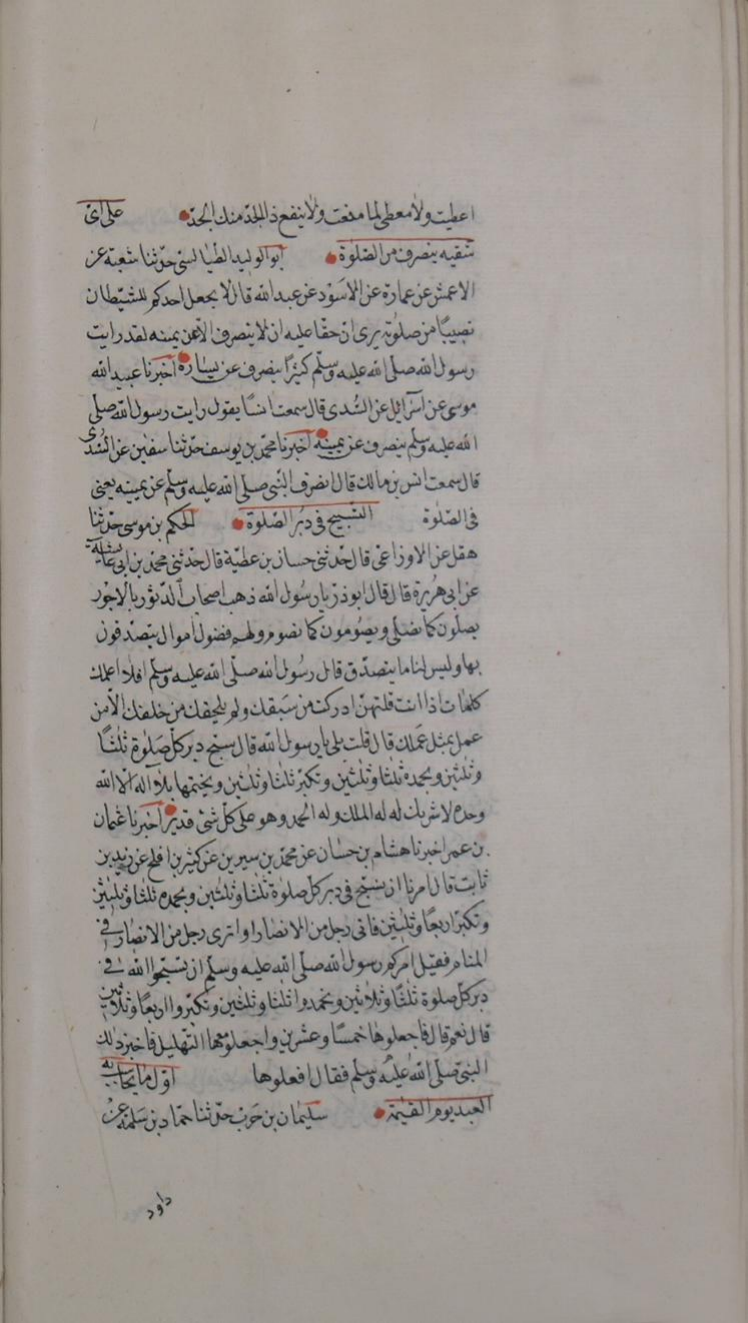 اعطيت ولا معطى لما منعت ولا ينفع ذا الجد منك الجد على اى
شقيه ينصرف من الصلوة ابو الوليد الطيالسى حدثنا شعبة عن
الاعمش عن عمارة عن الاسود عن عبد الله قال لا يجعل احدكم للشيطان
نصيبا من صلوته يرى ان حقا عليه ان لا ينصرف الا عن يمينه لقد رايت
رسول الله صلى الله عليه وسلم كثيرا ينصرف عن يساره اخبرنا عبيد الله
موسى عن اسرائيل عن السدى قال سمعت انسا يقول رايت رسول الله صلى
الله عليه وسلم ينصرف عن يمينه اخبرنا محمد بن يوسف حدثنا سفين عن السدى
قال سمعت انس بن مالك قال انصرف النبى صلى الله عليه وسلم عن يمينه يعنى
فى الصلوة التسبيح فى دبر الصلوة الحكم بن موسى حدثنا
هقل عن الاوزاعى قال حدثنى حسان بن عطية قال حدثنى محمد بن ابى عايشة
عن ابى هريرة قال قال ابو ذر يا رسول الله ذهب اصحاب الدثور بالاجور
يصلون كما نصلى ويصومون كما نصوم ولهم فضول اموال يتصدقون
بها وليس لنا ما نتصدق قال رسول الله صلى الله عليه وسلم افلا اعلمك
كلمات اذا انت قلتهن ادركت من سبقك ولم يلحقك من خلفك الا من
عمل بمثل عملك قال قلت بلى يا رسول الله قال سبح دبر كل صلوة ثلثا
وثلثين وبحمده ثلثا وثلثين وتكبر ثلثا وثلثين ويختمها بلا اله الا الله
وحده لا شريك له له الملك وله الحمد وهو على كل شئ قدير اخبرنا عثمان
بن عمر اخبرنا هشام بن حسان عن محمد بن سيرين عن كثير بن افلح عن زيد بن
ثابت قال امرنا ان نسبح فى دبر كل صلوة ثلثا وثلثين وبحمده ثلثا وثلثين
وتكبر اربعا وثلثين فاتى رجل من الانصار او اترى رجل من الانصار فى
المنام فقيل امركم رسول الله صلى الله عليه وسلم ان تسبحوا الله فى
دبر كل صلوة ثلثا وثلاثين وتحمدوا ثلثا وثلثين وتكبروا اربعا وثلاثين
قال نعم قال فاجعلوها خمسا وعشرين واجعلوا معها التهليل فاخبر ذلك
النبى صلى الله عليه وسلم فقال افعلوها اول ما يحاسب به
العبد يوم القيمة سليمان بن حرب حدثنا حماد بن سلمة عن
داود